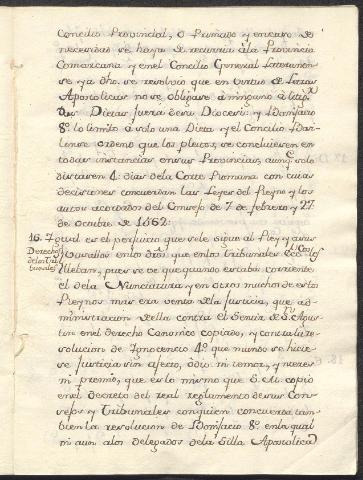 Concilio Provincial, o Primado y en caso de
necesidad se haya de recurrir à la Provincia
Comarcana y en el Concilio General Lateranen
se ya dho. se resolvio que en virtud de Letras
Apostolicas no se obligase à ninguno à litigar
dos Dietas fuera de su Diocesis: y Bonifacio
8º lo limito à solo una Dieta y el Concilio Basi-
liense ordeno que los pleytos, se concluiesen en
todas instancias en sus Provincias, aunq. solo
distasen 4 dias de la Corte Romana con cuias
decisiones concuerdan las Leyes del Reyno y los
autos acordados del Consejo de 7 de febrero y 27
de octubre de 1562.
16. Y qual es el perjuicio que se le sigue al Rey y a sus
Derechos de los Tribunales
Vasallos en los dros. que en los tribunales Ecc.cos se
llevan, pues se ve que quando estaba corriente
el de la Nunciatura y en otros muchos de estos
Reynos mas era venta de la Justicia, que ad-
ministracion de ella contra el sentir de S. Agus-
tin en el derecho Canonico copiado, y contra la re-
solucion de Ignocencio 4º que mando se hicie-
se Justicia sin afecto, odio ni temor, y menos
ni premio, que es lo mismo que S. M. copio
en el decreto del real reglamento de sus Con-
sejos y Tribunales con quien concuerda tam-
bien la resolucion de Bonifacio 8º en la qual
ni aun a los delegados de la Silla Apostolica